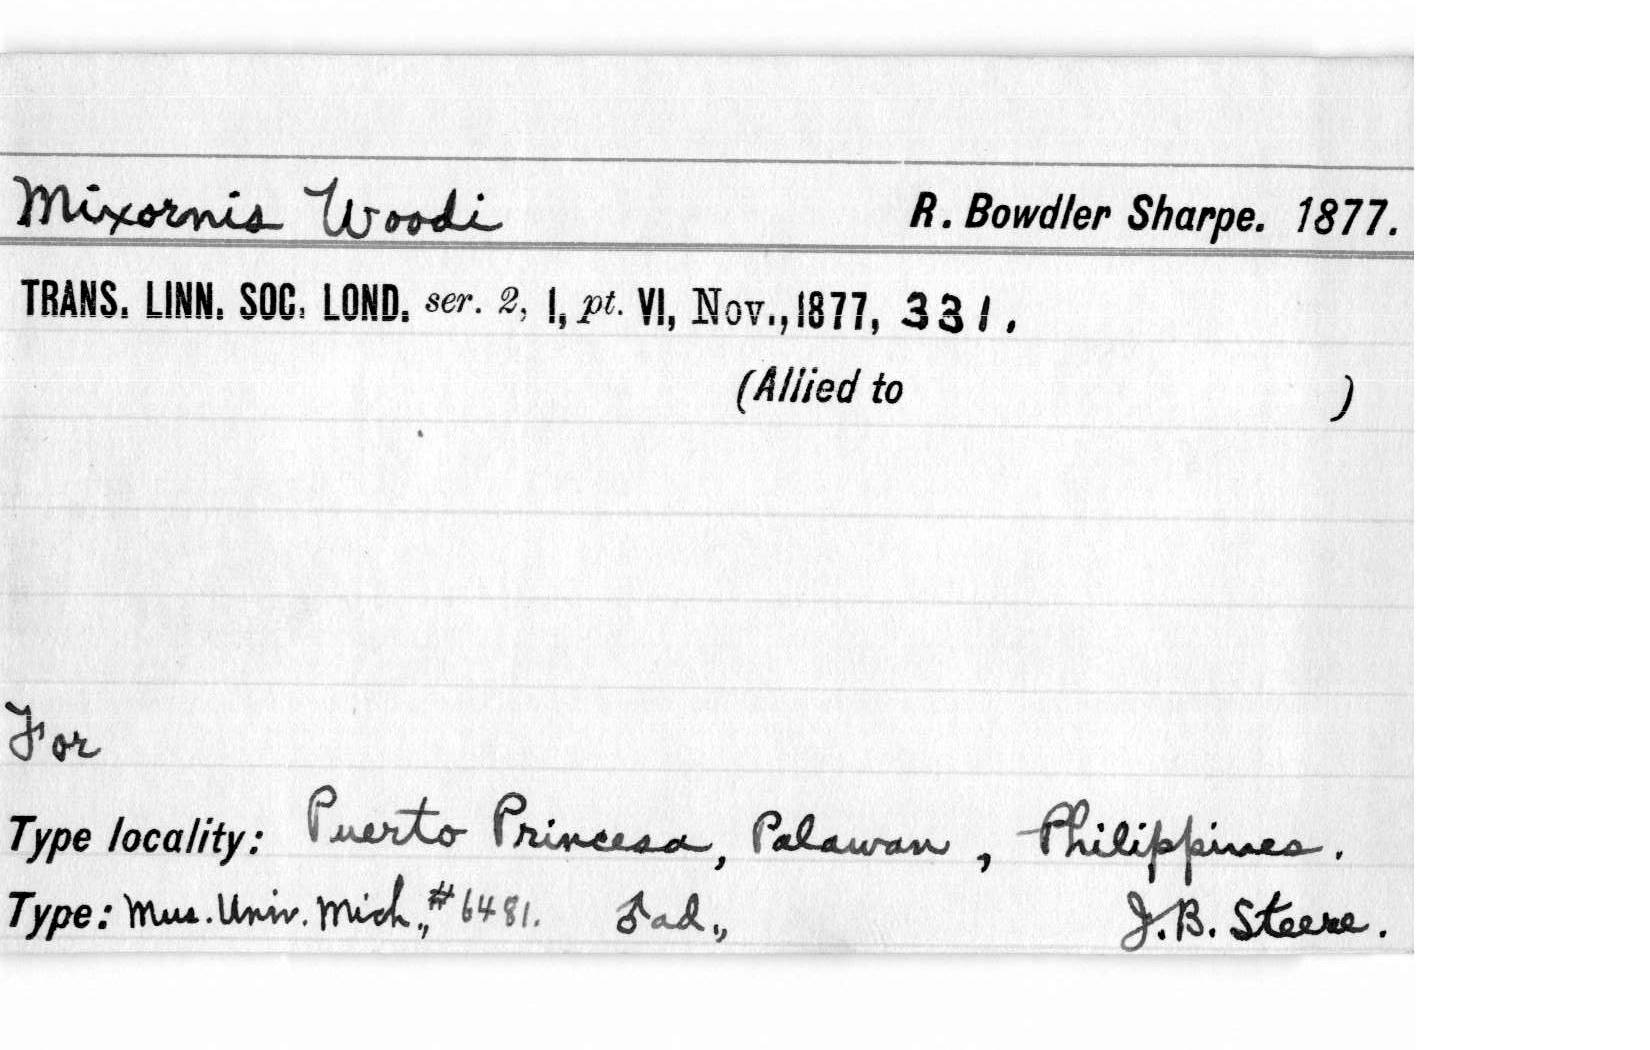 Mixornis Woodi R. Bowdler Sharpe. 1877.
TRANS. LINN. SOC. LOND. ser. 2, I, pt. VI, Nov., 1877, 331.
(Allied to )
For
Type locality: Puerto Princesa, Palawan, Philippines.
Type: Mus. Univ. Mich., #6481. ♂ ad., J. B. Steere.